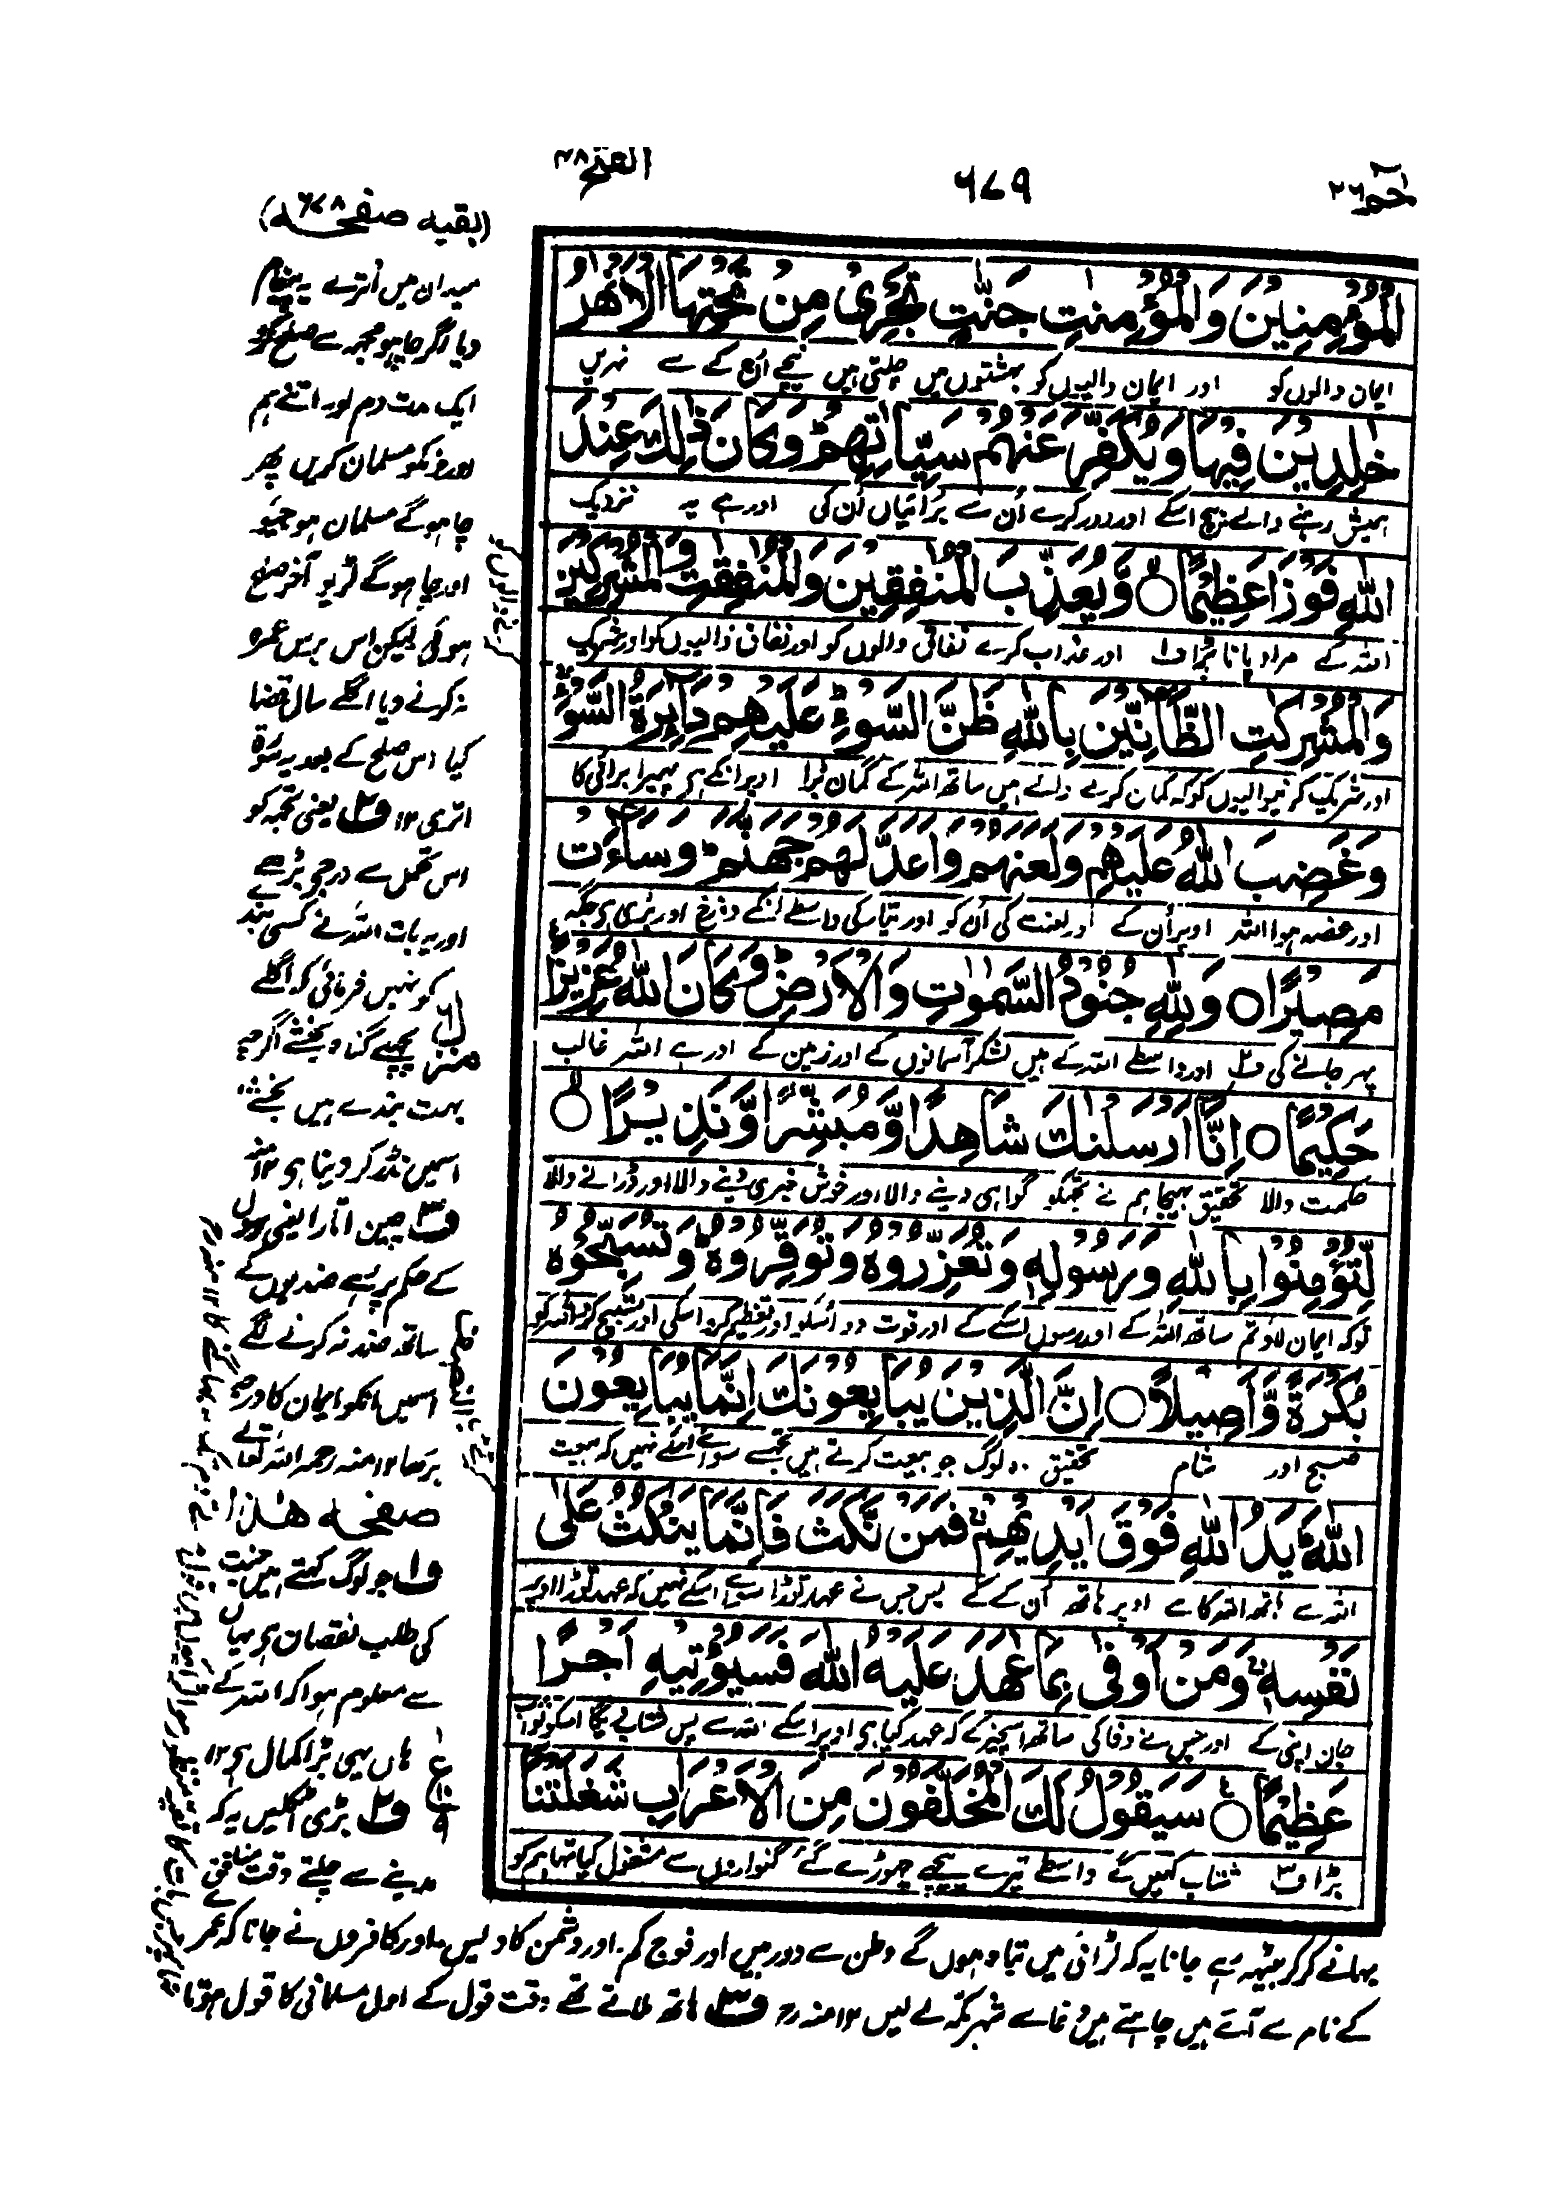 حم ٢٦
٦٧٩
الفتح ٤٨
الْمُؤْمِنِيْنَ وَالْمُؤْمِنٰتِ جَنّٰتٍ تَجْرِيْ مِنْ تَحْتِهَا الْاَنْهٰرُ
ایمان والوں کو اور ایمان والیوں کو بہشتوں میں چلتی ہیں نیچے اُن کے سے نہریں
خٰلِدِيْنَ فِيْهَا وَيُكَفِّرَ عَنْهُمْ سَيِّاٰتِهِمْ ؕ وَكَانَ ذٰلِكَ عِنْدَ
ہمیش رہنے والے بیچ اسکے اور دور کرے اُن سے برائیاں اُن کی اور ہے یہ نزدیک
اللّٰهِ فَوْزًا عَظِيْمًا ۙ وَّيُعَذِّبَ الْمُنٰفِقِيْنَ وَالْمُنٰفِقٰتِ وَالْمُشْرِكِيْنَ
اللہ کے مراد پانا بڑا ف۱ اور عذاب کرے نفاق والوں کو اور نفاق والیوں کو اور شریک
وَالْمُشْرِكٰتِ الظَّآنِّيْنَ بِاللّٰهِ ظَنَّ السَّوْءِ ؕ عَلَيْهِمْ دَآئِرَةُ السَّوْءِ ۚ
اور شریک کرنیوالیوں کو کہ گمان کرنے والے ہیں ساتھ اللہ کے گمان بُرا اوپر انکے ہی پھیرا برائی کا
وَغَضِبَ اللّٰهُ عَلَيْهِمْ وَلَعَنَهُمْ وَاَعَدَّ لَهُمْ جَهَنَّمَ ؕ وَسَآءَتْ
اور غصہ ہوا اللہ اوپر اُن کے اور لعنت کی اُن کو اور تیار کی واسطے انکے دوزخ اور بری ہی جگہ
مَصِيْرًا ۝ وَلِلّٰهِ جُنُوْدُ السَّمٰوٰتِ وَالْاَرْضِ ؕ وَكَانَ اللّٰهُ عَزِيْزًا
پھر جانے کی ف۲ اور واسطے اللہ کے ہیں لشکر آسمانوں کے اور زمین کے اور ہے اللہ غالب
حَكِيْمًا ۝ اِنَّآ اَرْسَلْنٰكَ شَاهِدًا وَّمُبَشِّرًا وَّنَذِيْرًا ۙ
حکمت والا تحقیق بھیجا ہم نے تجھکو گواہی دینے والا اور خوش خبری دینے والا اور ڈرانے والا
لِّتُؤْمِنُوْا بِاللّٰهِ وَرَسُوْلِهٖ وَتُعَزِّرُوْهُ وَتُوَقِّرُوْهُ ؕ وَتُسَبِّحُوْهُ
توکہ ایمان لاؤ تم ساتھ اللہ کے اور رسول اسکے کے اور قوت دو اُسکو اور تعظیم کرو اسکی اور تسبیح کرو اللہ کو
بُكْرَةً وَّاَصِيْلًا ۝ اِنَّ الَّذِيْنَ يُبَايِعُوْنَكَ اِنَّمَا يُبَايِعُوْنَ
صبح اور شام تحقیق وہ لوگ جو بیعت کرتے ہیں تجھسے سوائے اسکے نہیں کہ بیعت
اللّٰهَ ؕ يَدُ اللّٰهِ فَوْقَ اَيْدِيْهِمْ ۚ فَمَنْ نَّكَثَ فَاِنَّمَا يَنْكُثُ عَلٰى
اللہ سے ہاتھ اللہ کا ہے اوپر ہاتھ اُن کے کے پس جس نے عہد توڑا سوائے اسکے نہیں کہ عہد توڑا اوپر
نَفْسِهٖ ۚ وَمَنْ اَوْفٰى بِمَا عٰهَدَ عَلَيْهُ اللّٰهَ فَسَيُؤْتِيْهِ اَجْرًا
جان اپنی کے اور جس نے وفا کی ساتھ اسچیز کے کہ عہد کیا ہی اوپر اسکے اللہ سے پس شتاب دیگا اسکو ثواب
عَظِيْمًا ۝ سَيَقُوْلُ لَكَ الْمُخَلَّفُوْنَ مِنَ الْاَعْرَابِ شَغَلَتْنَآ
بڑا ف۳ شتاب کہیں گے واسطے تیرے پیچھے چھوڑے گئے گنواروں سے مشغول کیا تھا ہم کو
(بقیہ صفحہ ٦٧٨)
میدان میں اُترے یہ پیغام
دیا اگر چاہو مجھ سے صلح کرو
ایک مدت دم لو اتنے ہم
اوروں کو مسلمان کریں پھر
چاہو گے مسلمان ہوجیو
اور چاہو گے لڑیو آخر صلح
ہوئی لیکن اس برس عمرہ
نہ کرنے دیا اگلے سال قضا
کیا اس صلح کے بعد یہ سورۃ
اتری ۱۲ ف۲ یعنی تجھ کو
اس تحمل سے درجے بڑھے
اور یہ بات اللہ نے کسی بندے
کو نہیں فرمائی کہ اگلے
پچھلے گناہ بخشے اگرچہ
بہت بندے ہیں بخشے
اسمیں نڈر کر دینا ہی ۱۲ منہ
ف۳ چین اتارا یعنی رسول
کے حکم پر رہے ضدیوں کے
ساتھ ضد نہ کرنے لگے
اسمیں انکو ایمان کا درجہ
بڑھا ۱۲ منہ رحمہ اللہ تعالٰے
صفحہ ھٰذا
ف۱ جو لوگ کہتے ہیں جنت
کی طلب نقصان ہی یہاں
سے معلوم ہوا کہ اللہ کے
ہاں یہی بڑا کمال ہی ۱۲
ف۲ بڑی اٹکلیں یہ کہ
مدینے سے چلتے وقت منافق
بہانے کرکر بیٹھ رہے جانا یہ کہ لڑائی میں تباہ ہوں گے وطن سے دور ہیں اور فوج کم۔ اور دشمن کا دیس۔ اور کافروں نے جانا کہ عمرے
کے نام سے آتے ہیں چاہتے ہیں دغا سے شہر مکہ لے لیں ۱۲ منہ رح ف۳ ہاتھ ملاتے تھے وقت قول کے اول مسلمانی کا قول ہوتا